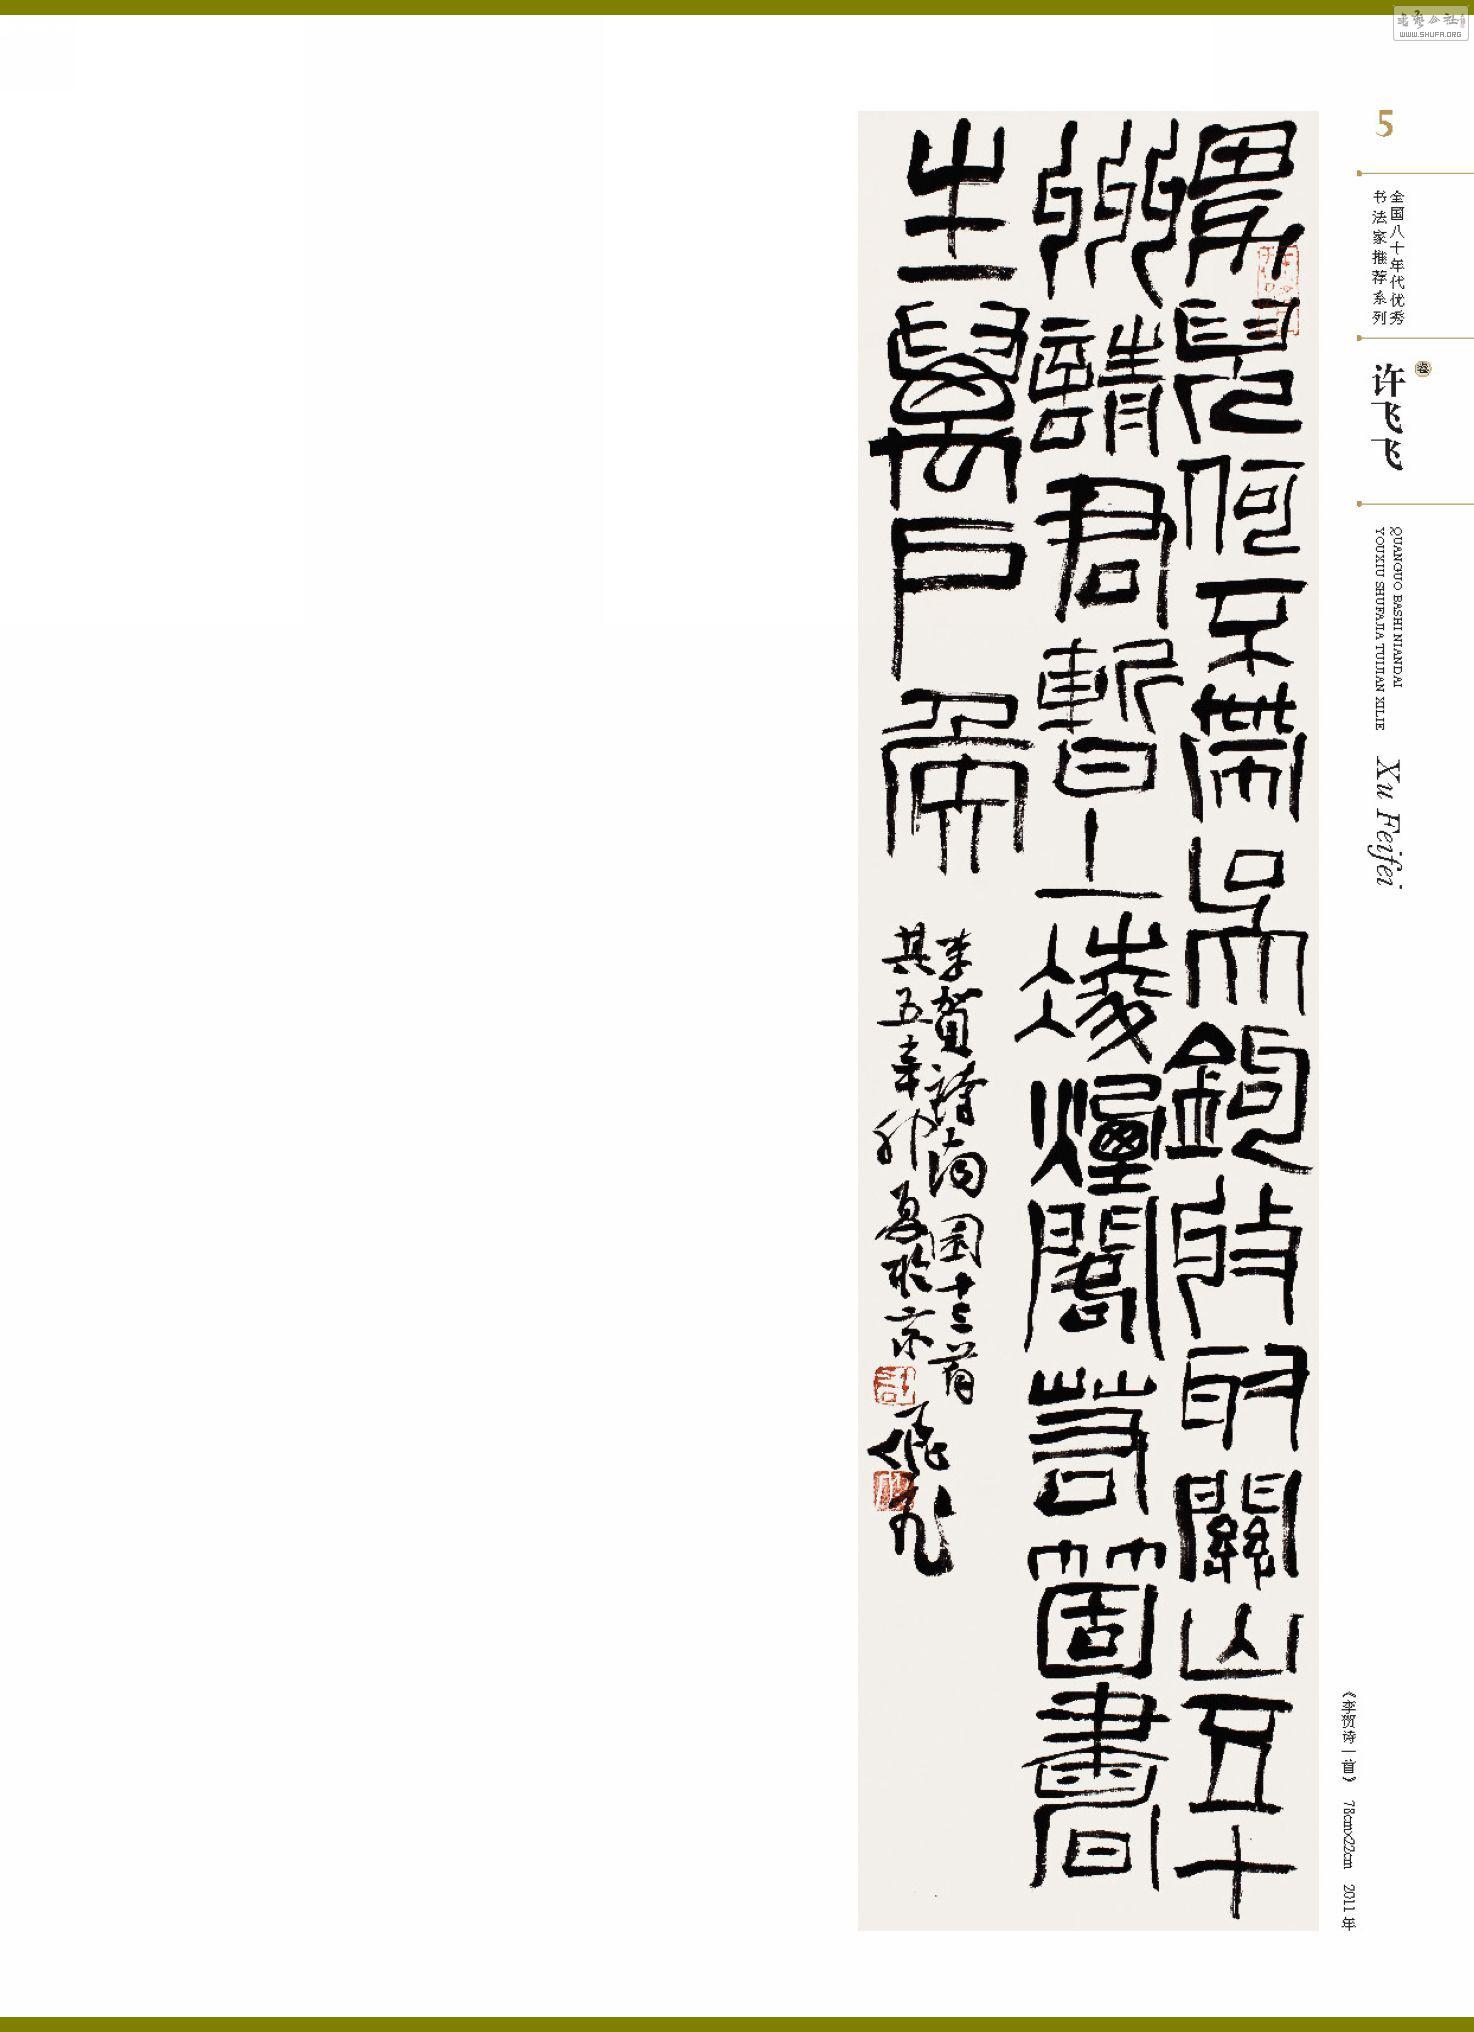 书艺公社
WWW.SHUFA.ORG
5
全国八十年代优秀
书法家推荐系列
许飞飞
QUANGUO BASHI NIANDAI
YOUXIU SHUFAJIA TUIJIAN XILIE
Xu Feifei
男兒何不帶吳鉤收取關山五十
州請君暫上凌煙閣若箇書
生萬戶侯
李賀詩南園十三首
其五辛卯夏於京飛飛
《李贺诗一首》 78cm×22cm 2011年